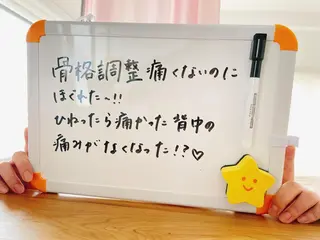 骨格調整痛くないのに
ほぐれたー!!
ひねったら痛かった背中の
痛みがなくなった!?♡